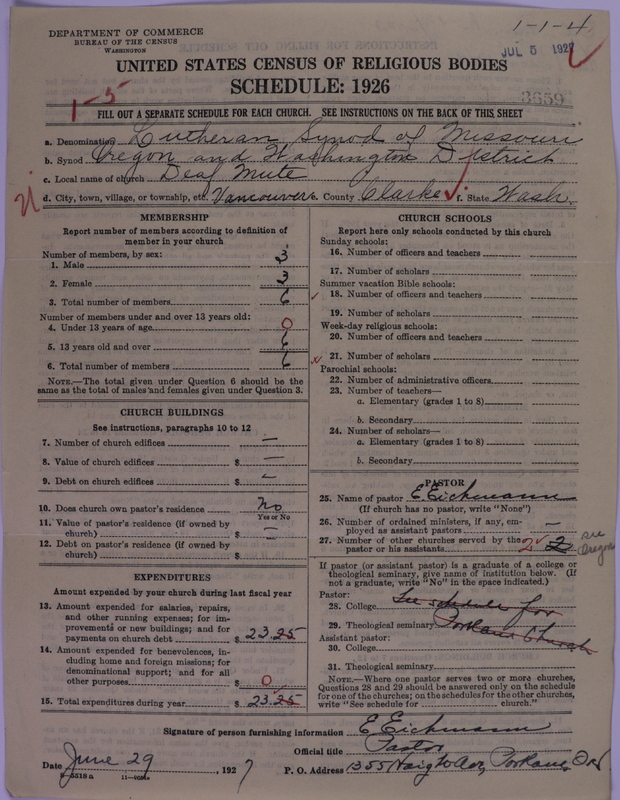 1-1-4
DEPARTMENT OF COMMERCE
BUREAU OF THE CENSUS
WASHINGTON
JUL 5 1927
UNITED STATES CENSUS OF RELIGIOUS BODIES
SCHEDULE: 1926
1-5
3659
FILL OUT A SEPARATE SCHEDULE FOR EACH CHURCH. SEE INSTRUCTIONS ON THE BACK OF THIS SHEET
a. Denomination Lutheran Synod of Missouri
b. Synod Oregon and Washington District
c. Local name of church Deaf Mute
d. City, town, village, or township, etc. Vancouver e. County Clarke f. State Wash.
MEMBERSHIP
Report number of members according to definition of
member in your church
Number of members, by sex:
1. Male 3
2. Female 3
3. Total number of members 6
Number of members under and over 13 years old:
4. Under 13 years of age 0
5. 13 years old and over 6
6. Total number of members 6
NOTE.—The total given under Question 6 should be the
same as the total of males and females given under Question 3.
CHURCH BUILDINGS
See instructions, paragraphs 10 to 12
7. Number of church edifices —
8. Value of church edifices $ —
9. Debt on church edifices $ —
10. Does church own pastor's residence No
Yes or No
11. Value of pastor's residence (if owned by
church) $ —
12. Debt on pastor's residence (if owned by
church) $
EXPENDITURES
Amount expended by your church during last fiscal year
13. Amount expended for salaries, repairs,
and other running expenses; for im-
provements or new buildings; and for
payments on church debt $ 23.25
14. Amount expended for benevolences, in-
cluding home and foreign missions; for
denominational support; and for all
other purposes $ 0
15. Total expenditures during year $ 23.25
CHURCH SCHOOLS
Report here only schools conducted by this church
Sunday schools:
16. Number of officers and teachers
17. Number of scholars
Summer vacation Bible schools:
18. Number of officers and teachers
19. Number of scholars
Week-day religious schools:
20. Number of officers and teachers
21. Number of scholars
Parochial schools:
22. Number of administrative officers
23. Number of teachers—
a. Elementary (grades 1 to 8)
b. Secondary
24. Number of scholars—
a. Elementary (grades 1 to 8)
b. Secondary
PASTOR
25. Name of pastor E. Eichmann
(If church has no pastor, write "None")
26. Number of ordained ministers, if any, em-
ployed as assistant pastors —
27. Number of other churches served by the
pastor or his assistants 2 2 see Oregon
If pastor (or assistant pastor) is a graduate of a college or
theological seminary, give name of institution below. (If
not a graduate, write "No" in the space indicated.)
Pastor:
28. College See schedule for
29. Theological seminary Portland Church
Assistant pastor:
30. College
31. Theological seminary
NOTE.—Where one pastor serves two or more churches,
Questions 28 and 29 should be answered only on the schedule
for one of the churches; on the schedules for the other churches,
write "See schedule for church."
Signature of person furnishing information E. Eichmann
Official title Pastor
Date June 29, 1927 P. O. Address 1355 Haight Ave, Portland Ore
11—9051